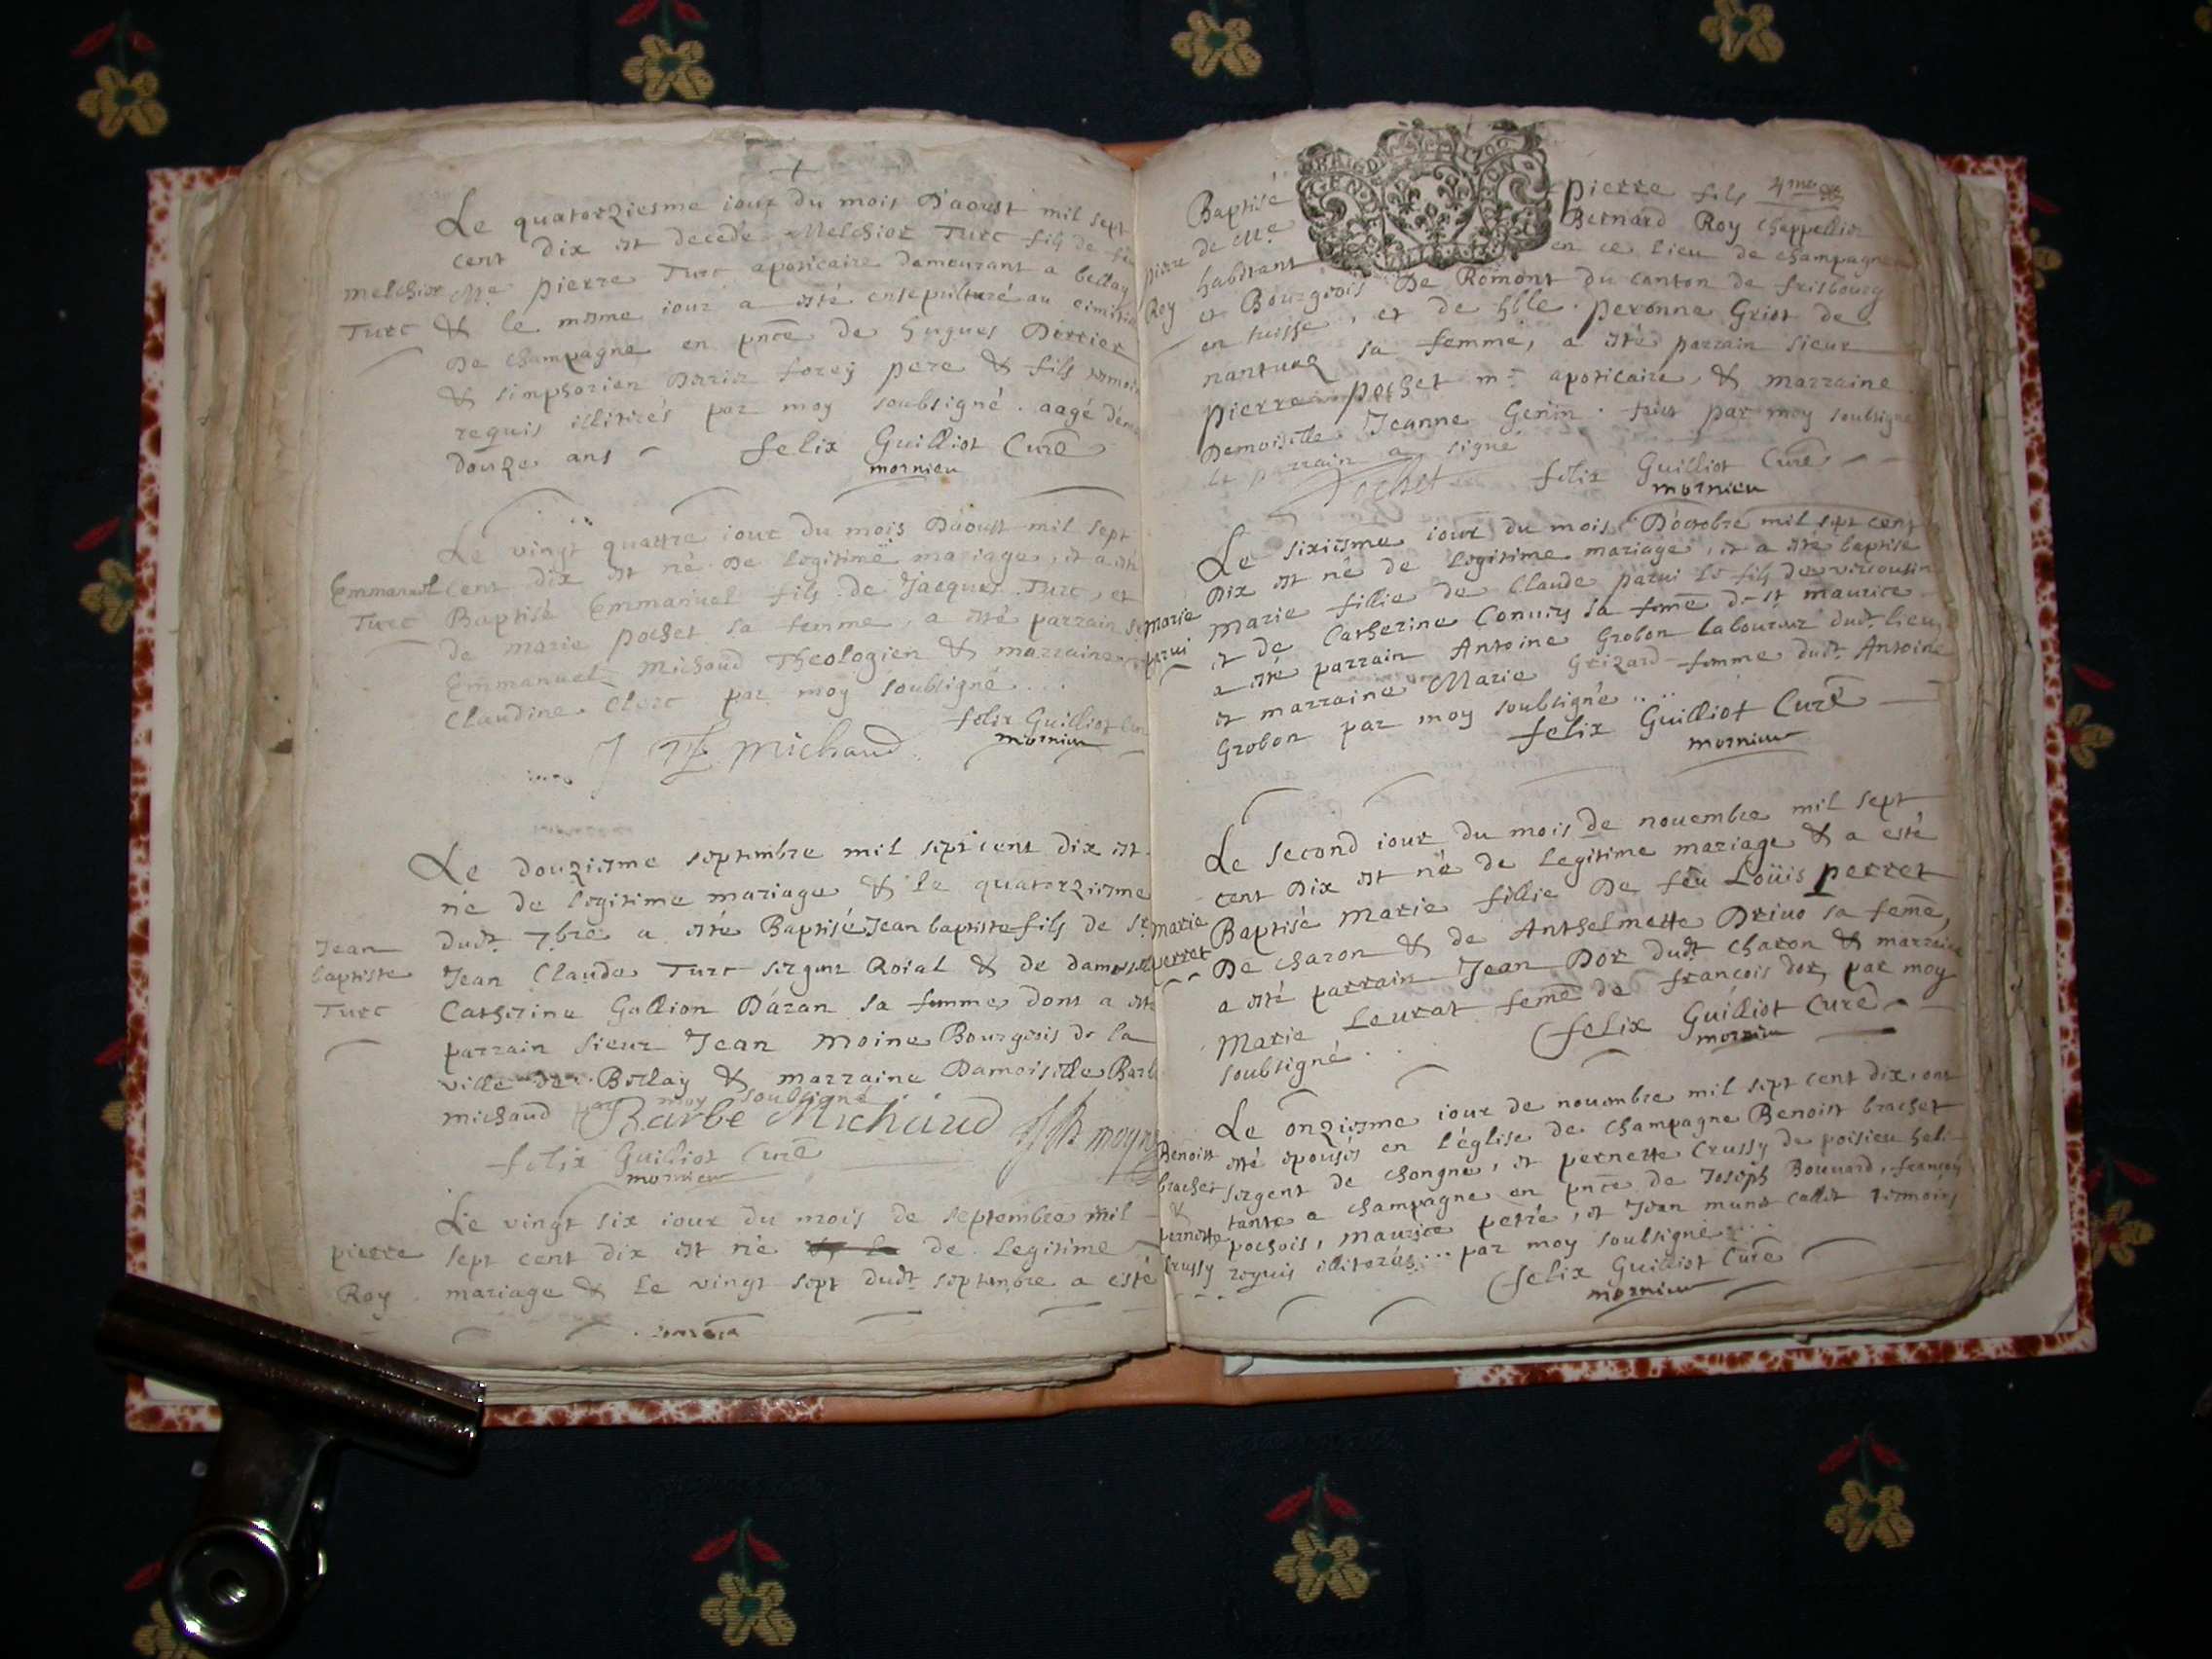 Le quatorziesme iour du mois D'aoust mil sept
cent dix est decede Melchior Turc fils de feu
melchior
Me pierre Turc apoticaire demeurant a bellay
Turc
& le mesme iour a esté ensepulturé au cimitiere
De champagne en pnce de hugues Derrier
& simphorien Derrier forey pere & fils temoins
requis illitirés par moy soubsigné. aagé d'env
douze ans
felix Guilliot Curé
mornieu
Le vingt quattre iour du mois D'aoust mil sept
Emmanuel
cent dix est né De legitime mariage, et a esté
Turc
Baptisé Emmanuel fils de Jacques Turc, et
de marie pochet sa femme, a esté parrain sr
Emmanuel Michaud Theologien & marraine
Claudine Clerc par moy soubsigné...
felix Guilliot Curé
mornieu
Michaud
Le douziesme septembre mil sept cent dix est
né de legitime mariage & le quatorziesme
Jean
dudt 7bre a esté Baptisé Jean baptiste fils de Sr
baptiste
Jean Claude Turc sergent Roial & de damoiselle
Turc
Catherine Gullion D'aran sa femme, dont a esté
parrain sieur Jean moine Bourgeois de la
ville de Bellay & marraine Damoiselle Barbe
michaud par moy soubsigné
Barbe Michaud
felix Guilliot Curé
mornieu
Le vingt six iour du mois de septembre mil
pierre
sept cent dix est né de Legitime
Roy
mariage & Le vingt sept dudt septembre a esté
GEN DIION
Baptisé pierre fils 4me
de Me Bernard Roy Chappellier
pierre
habitant en ce lieu de champagne
Roy
et Bourgeois De Romont du canton de frisbourg
en suisse, et de hble peronne Griot de
nantuaq sa femme, a esté parrain sieur
pierre pochet mre apoticaire & marraine
Demoiselle Jeanne Genin. faict par moy soubsigné
le parrain a signé
Pochet
felix Guilliot Curé
mornieu
Le sixiesme iour du mois D'octobre mil sept cent
Dix est né de Legitime mariage, et a esté baptisé
marie
Marie fillie de Claude parui le fils de vircousin
parui
et de Catherine Conuers sa feme de st maurice
a esté parrain Antoine Grobon Laboureur dudt lieu
et marraine Marie Grizard femme dudt Antoine
Grobon par moy soubsigné...
felix Guilliot Curé
mornieu
Le second iour du mois de nouembre mil sept
cent Dix est né de Legitime mariage & a esté
marie
Baptisé Marie fillie De feu Loüis perret
perret
De charon & de Anthelmette Driuo sa feme,
a esté parrain Jean Dor dudt charon & marraine
Marie Leurat feme de françois dor, par moy
soubsigné
felix Guilliot Curé
mornieu
Le onziesme iour de nouembre mil sept cent dix, ont
Benoist
esté epousés en l'église de champagne Benoist brachet
brachet
sergent de chongne, et pernette Crussy de poisieu habi
&
tante a champagne en pnce de Joseph Bouuard, françois
pernette
pochois, maurice petre, et Jean muna collet temoins
Crussy
requis illitorés... par moy soubsigné...
felix Guilliot Curé
mornieu